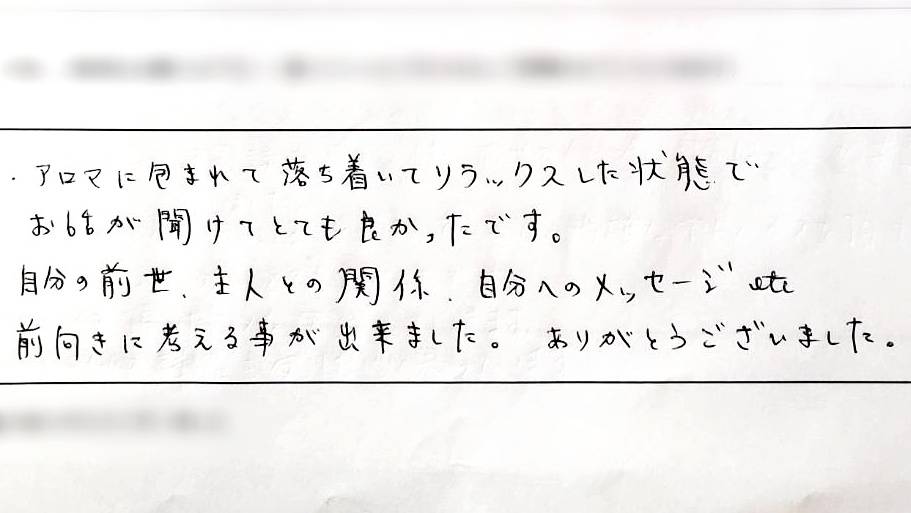 ・アロマに包まれて落ち着いてリラックスした状態で
お話が聞けてとても良かったです。
自分の前世、主人との関係、自分へのメッセージetc
前向きに考える事が出来ました。 ありがとうございました。